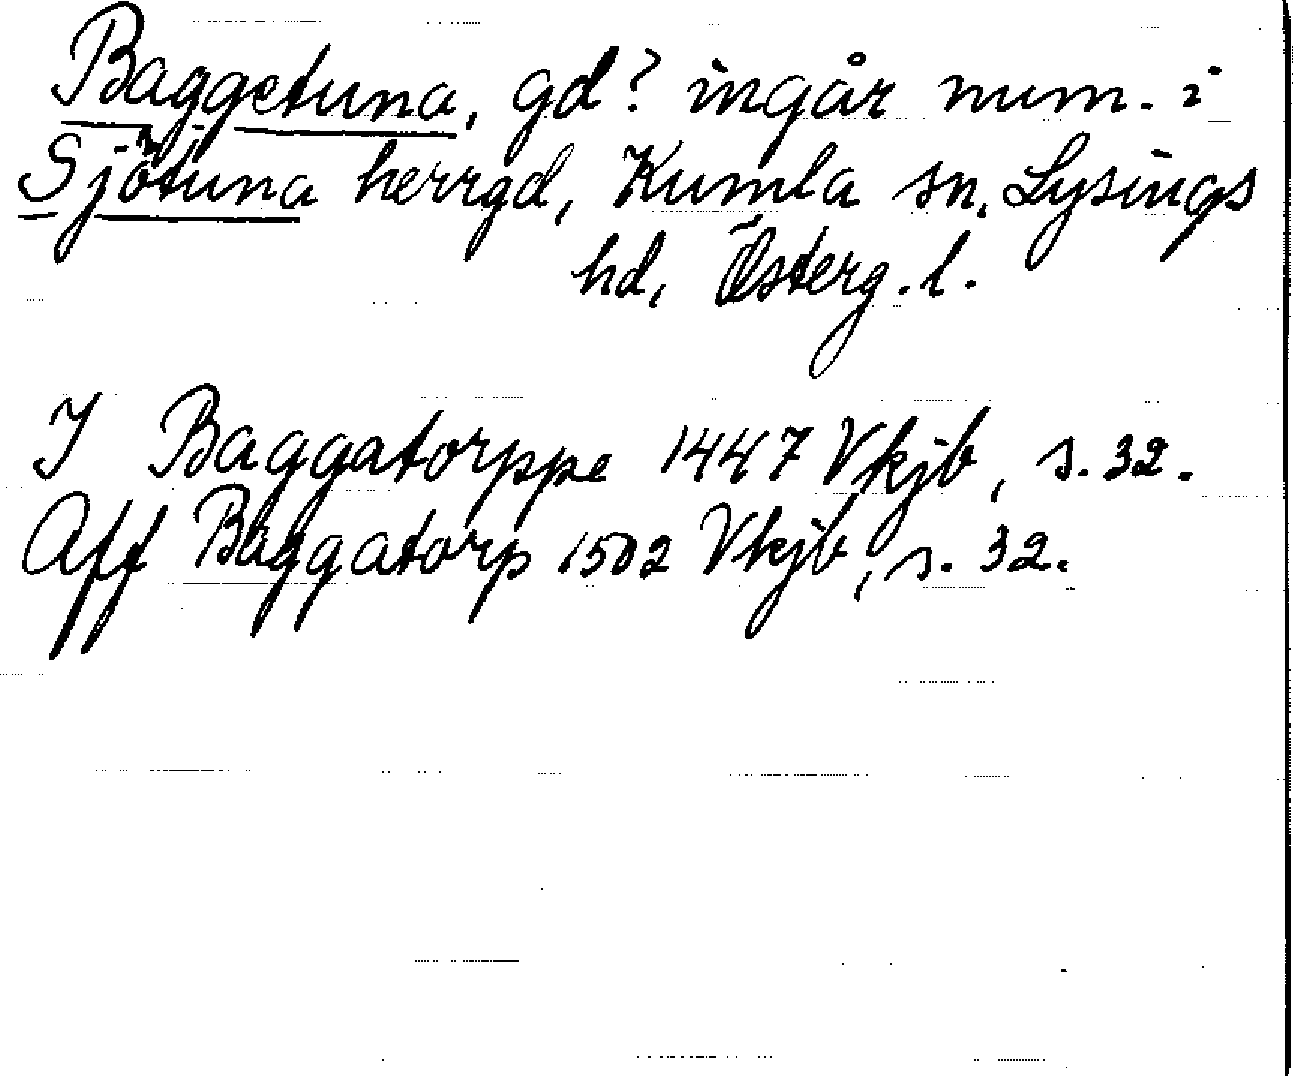 Baggetuna, gd? ingår num. i
Sjötuna herrgd, Kumla sn, Lysings
hd, Österg. l.
I Baggatorppe 1447 Vkjb, s. 32.
Aff Baggatorp 1502 Vkjb, s. 32.